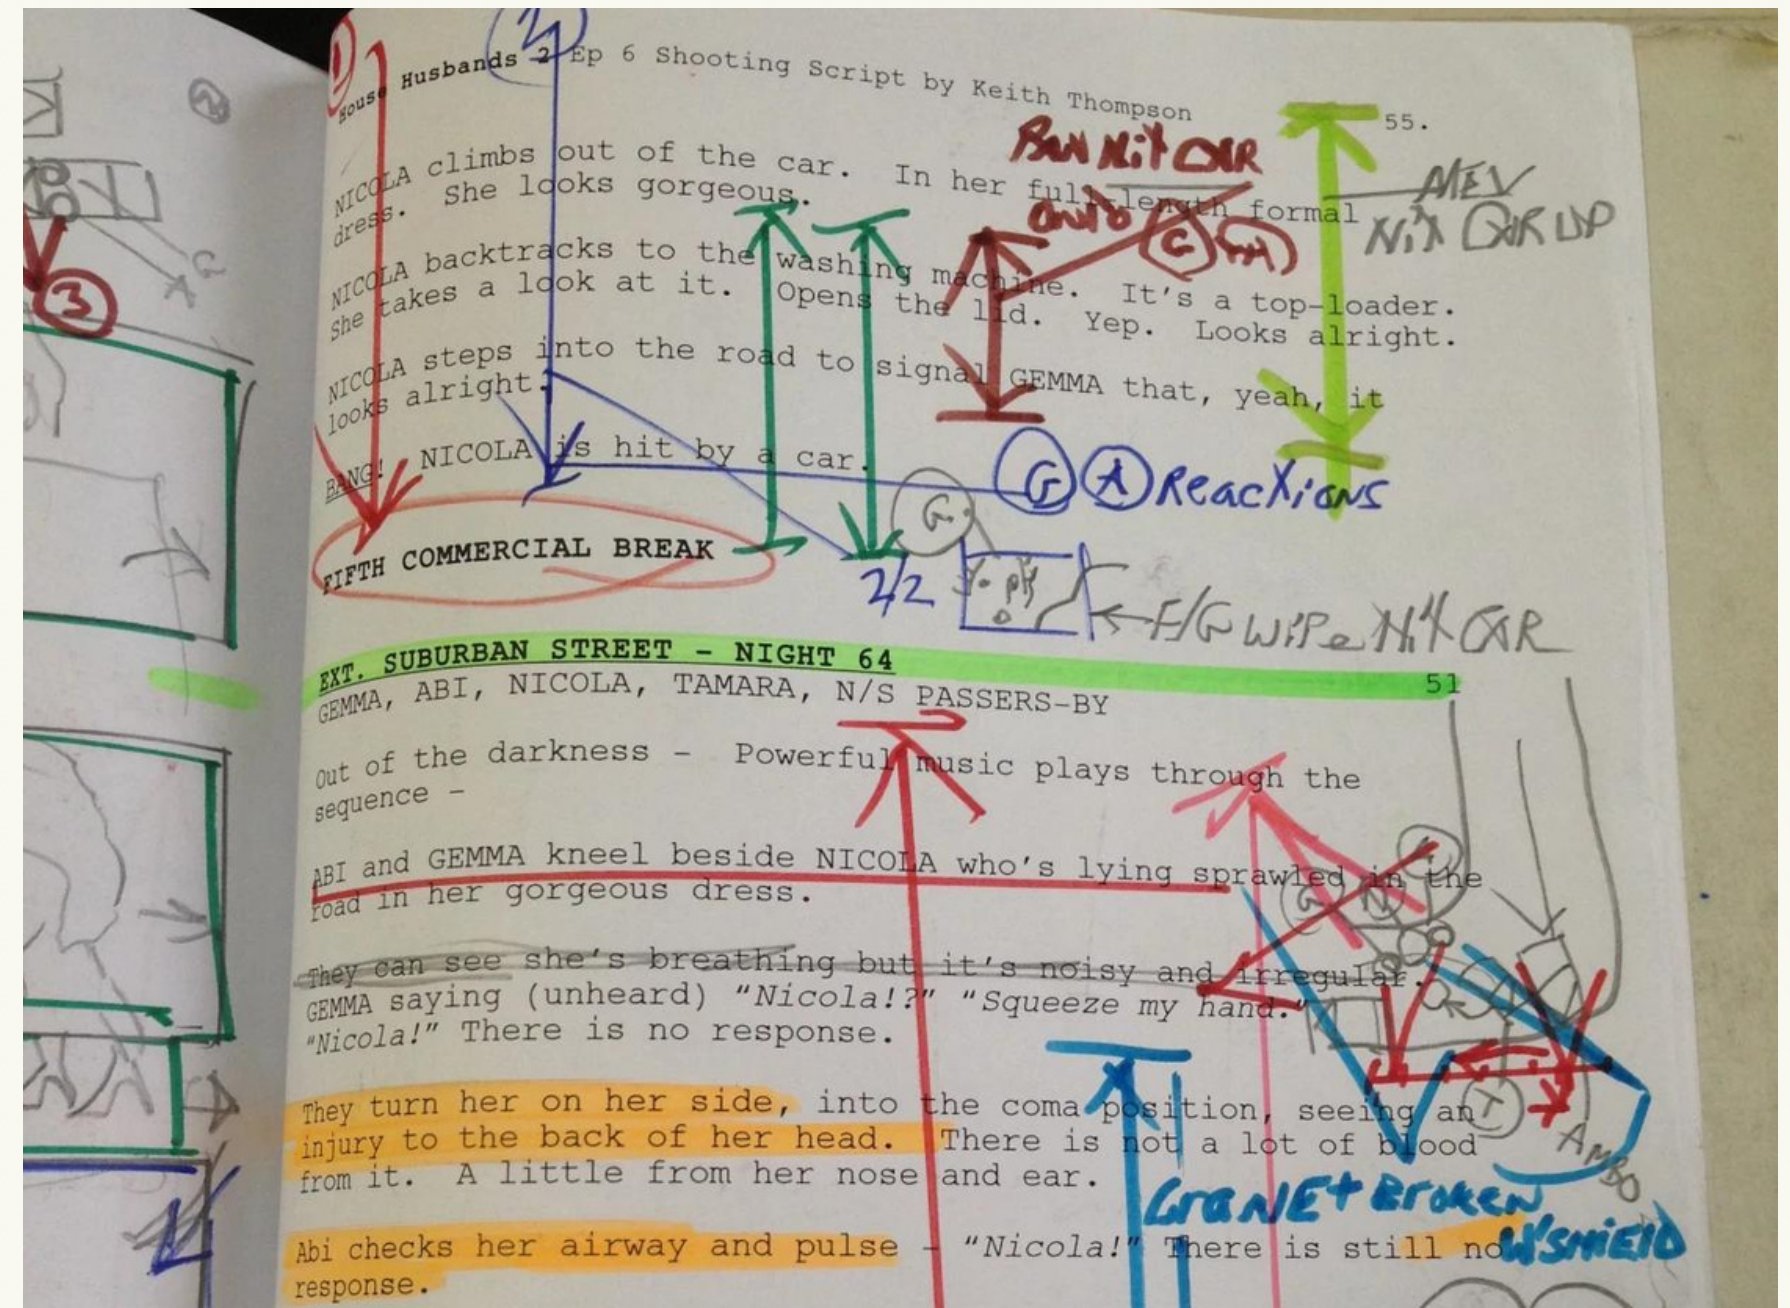 House Husbands 2 Ep 6 Shooting Script by Keith Thompson
55.
NICOLA climbs out of the car. In her full-length formal
dress. She looks gorgeous.
NICOLA backtracks to the washing machine. It's a top-loader.
She takes a look at it. Opens the lid. Yep. Looks alright.
NICOLA steps into the road to signal GEMMA that, yeah, it
looks alright.
BANG! NICOLA is hit by a car.
FIFTH COMMERCIAL BREAK
EXT. SUBURBAN STREET - NIGHT 64
51
GEMMA, ABI, NICOLA, TAMARA, N/S PASSERS-BY
Out of the darkness - Powerful music plays through the
sequence -
ABI and GEMMA kneel beside NICOLA who's lying sprawled in the
road in her gorgeous dress.
They can see she's breathing but it's noisy and irregular.
GEMMA saying (unheard) "Nicola!?" "Squeeze my hand."
"Nicola!" There is no response.
They turn her on her side, into the coma position, seeing an
injury to the back of her head. There is not a lot of blood
from it. A little from her nose and ear.
Abi checks her airway and pulse - "Nicola!" There is still no
response.
1
2
3
G
G A Reactions
2/2
G
F/G WIPE
G
N
T
AMBO
CRANE + BROKEN
W'SHIELD